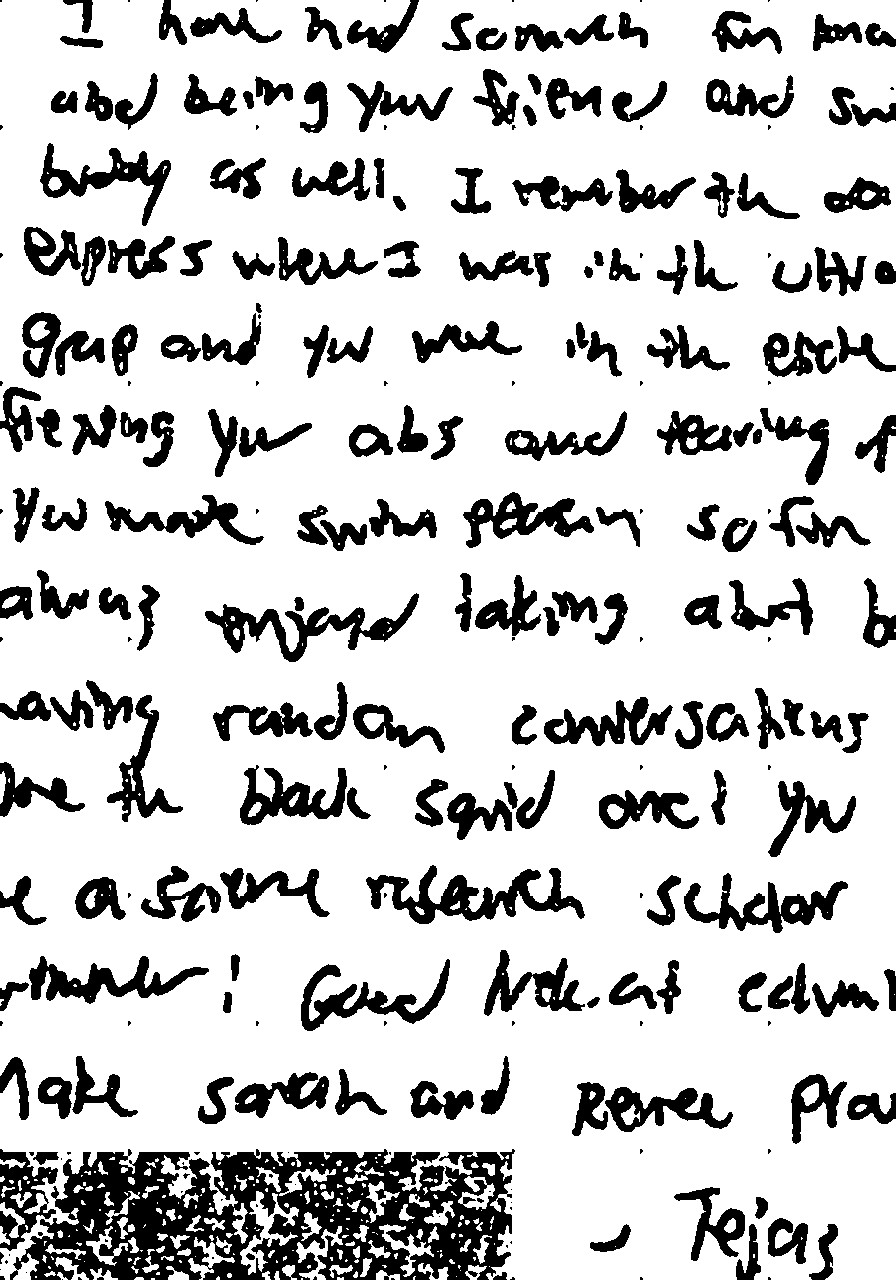 I have had so much fun
and being your friend and
buddy as well. I remember the
express where I was in the ultra
group and you were in the
your abs and tearing
You made swim season so fun
always enjoyed talking about
having random conversations
the black squid one! You
a science research scholar
! Good luck at
Make Sarah and Renee
- Tejas